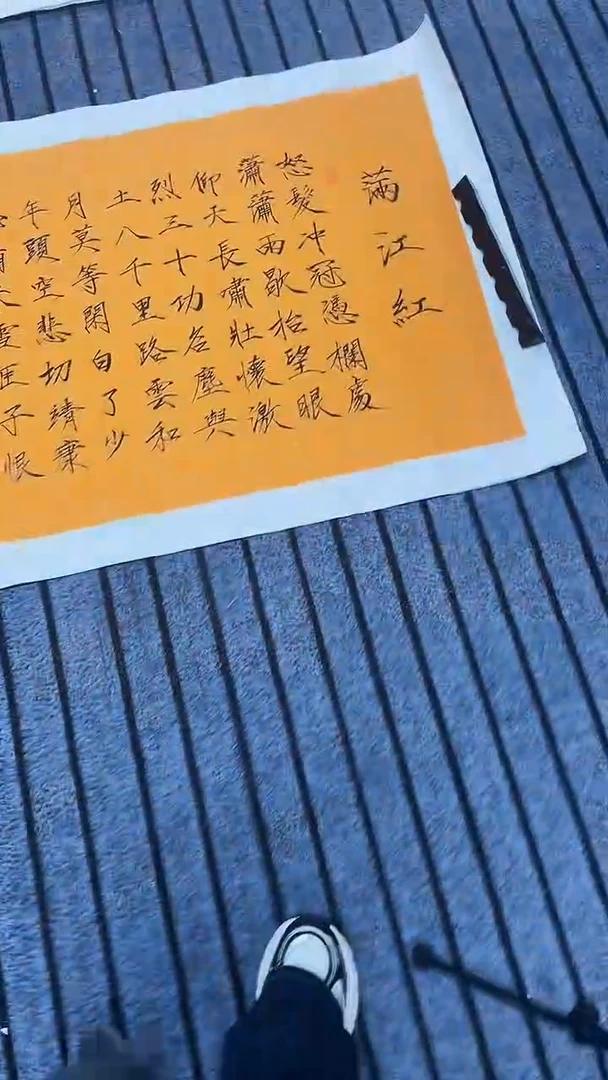 滿江紅
怒髮冲冠憑欄處
瀟瀟雨歇抬望眼
仰天長嘯壯懷激
烈三十功名塵與
土八千里路雲和
月莫等閑白了少
年頭空悲切靖康
臣子恨